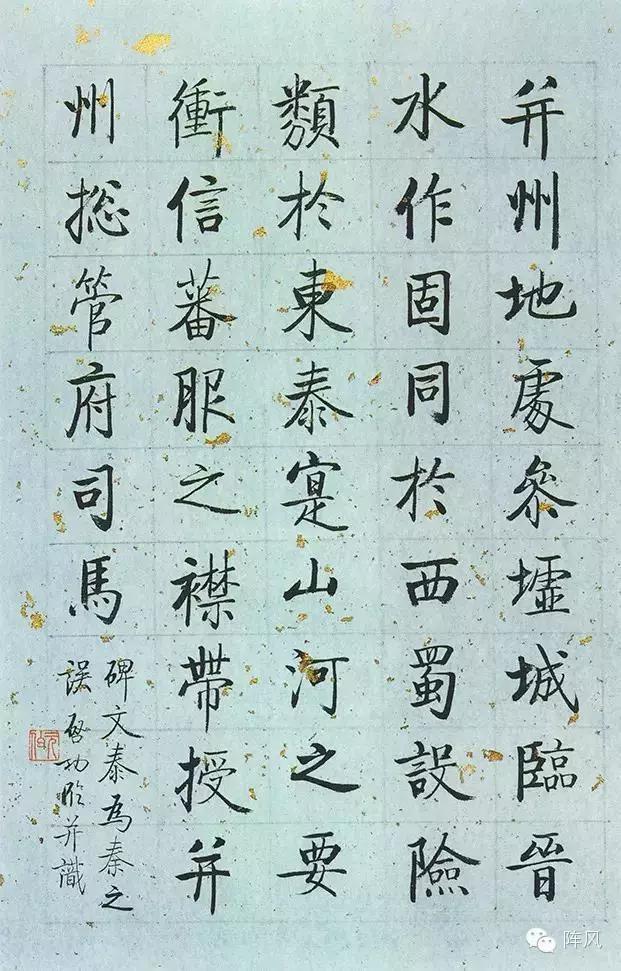 并州地處叅墟城臨晉
水作固同於西蜀設險
類於東泰寔山河之要
衝信蕃服之襟帶授并
州捴管府司馬
碑文泰為秦之
誤啓功臨并識
元白
阵风